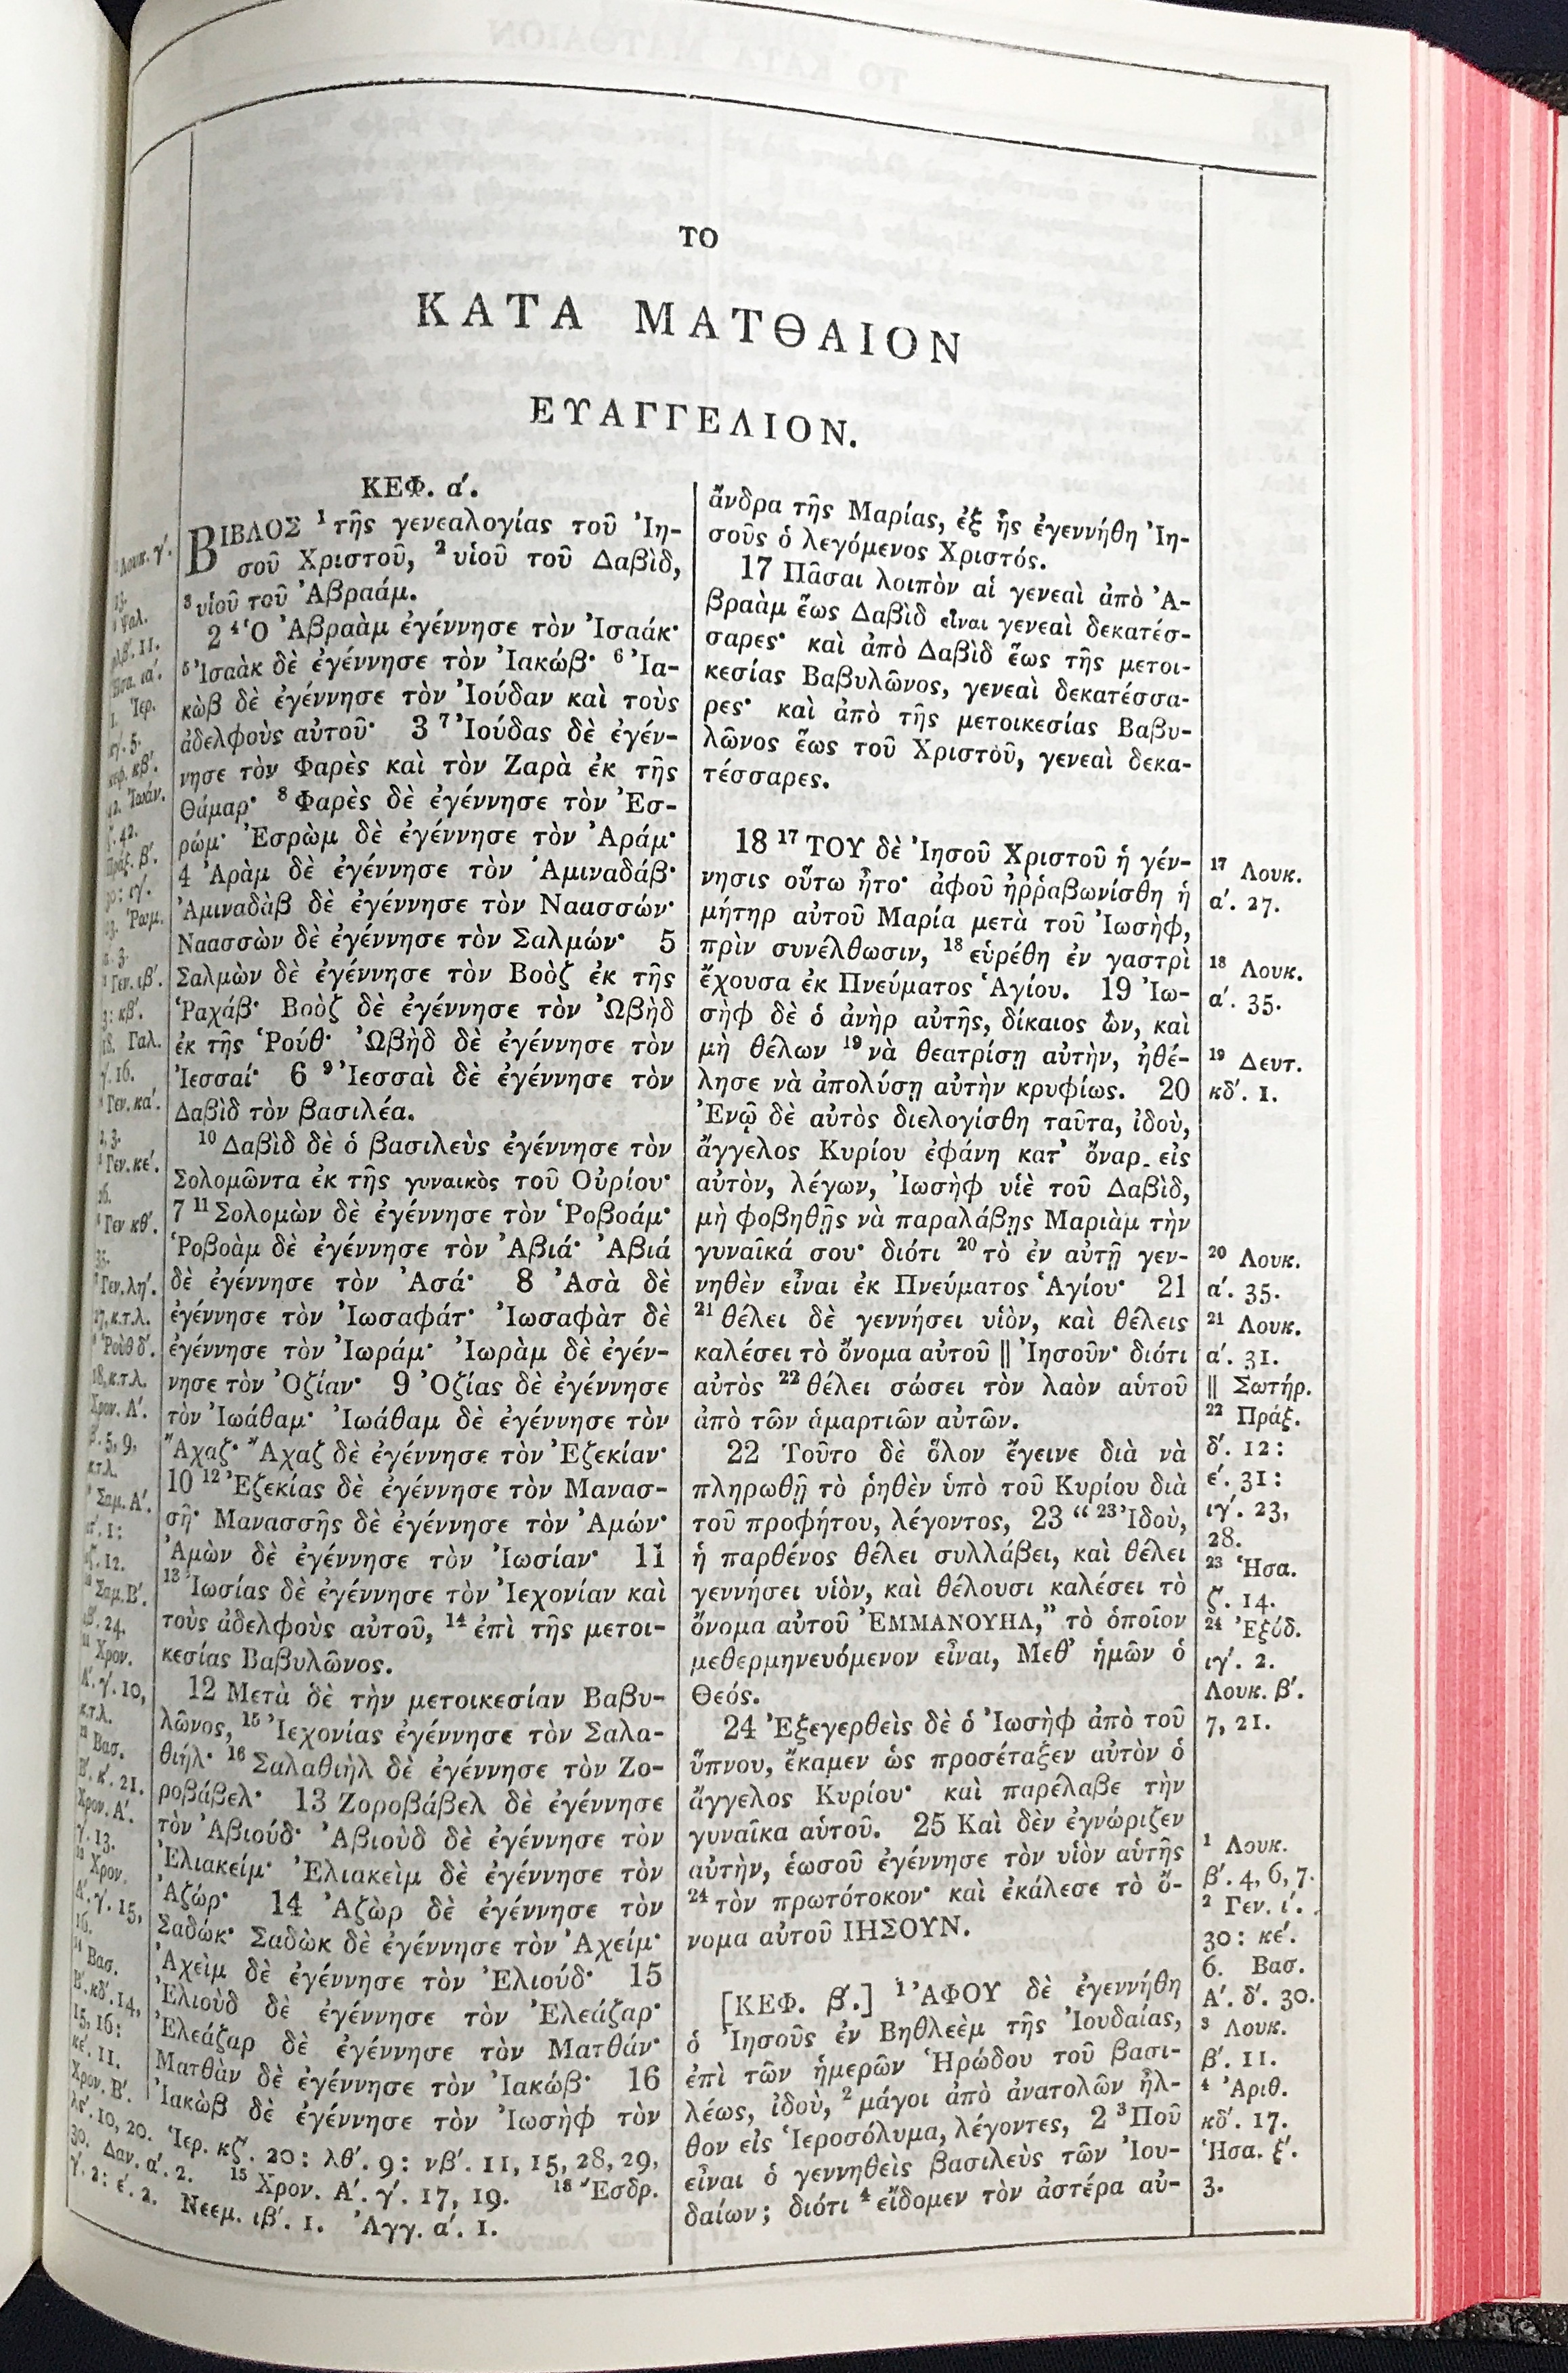 ΤΟ
ΚΑΤΑ ΜΑΤΘΑΙΟΝ
ΕΥΑΓΓΕΛΙΟΝ.
ΚΕΦ. α΄.
ΒΙΒΛΟΣ ¹ τῆς γενεαλογίας τοῦ Ἰη-
σοῦ Χριστοῦ, ² υἱοῦ τοῦ Δαβὶδ,
³ υἱοῦ τοῦ Ἀβραάμ.
2 ⁴ Ὁ Ἀβραὰμ ἐγέννησε τὸν Ἰσαάκ·
⁵ Ἰσαὰκ δὲ ἐγέννησε τὸν Ἰακώβ· ⁶ Ἰα-
κὼβ δὲ ἐγέννησε τὸν Ἰούδαν καὶ τοὺς
ἀδελφοὺς αὐτοῦ· 3 ⁷ Ἰούδας δὲ ἐγέν-
νησε τὸν Φαρὲς καὶ τὸν Ζαρὰ ἐκ τῆς
Θάμαρ· ⁸ Φαρὲς δὲ ἐγέννησε τὸν Ἐσ-
ρώμ· Ἐσρὼμ δὲ ἐγέννησε τὸν Ἀράμ·
4 Ἀρὰμ δὲ ἐγέννησε τὸν Ἀμιναδάβ·
Ἀμιναδὰβ δὲ ἐγέννησε τὸν Ναασσών·
Ναασσὼν δὲ ἐγέννησε τὸν Σαλμών· 5
Σαλμὼν δὲ ἐγέννησε τὸν Βοὸζ ἐκ τῆς
Ῥαχάβ· Βοὸζ δὲ ἐγέννησε τὸν Ὠβὴδ
ἐκ τῆς Ῥούθ· Ὠβὴδ δὲ ἐγέννησε τὸν
Ἰεσσαί· 6 ⁹ Ἰεσσαὶ δὲ ἐγέννησε τὸν
Δαβὶδ τὸν βασιλέα.
¹⁰ Δαβὶδ δὲ ὁ βασιλεὺς ἐγέννησε τὸν
Σολομῶντα ἐκ τῆς γυναικὸς τοῦ Οὐρίου·
7 ¹¹ Σολομὼν δὲ ἐγέννησε τὸν Ῥοβοάμ·
Ῥοβοὰμ δὲ ἐγέννησε τὸν Ἀβιά· Ἀβιά
δὲ ἐγέννησε τὸν Ἀσά· 8 Ἀσὰ δὲ
ἐγέννησε τὸν Ἰωσαφάτ· Ἰωσαφὰτ δὲ
ἐγέννησε τὸν Ἰωράμ· Ἰωρὰμ δὲ ἐγέν-
νησε τὸν Ὀζίαν· 9 Ὀζίας δὲ ἐγέννησε
τὸν Ἰωάθαμ· Ἰωάθαμ δὲ ἐγέννησε τὸν
Ἄχαζ· Ἄχαζ δὲ ἐγέννησε τὸν Ἐζεκίαν·
10 ¹² Ἐζεκίας δὲ ἐγέννησε τὸν Μανασ-
σῆ· Μανασσῆς δὲ ἐγέννησε τὸν Ἀμών·
Ἀμὼν δὲ ἐγέννησε τὸν Ἰωσίαν· 11
¹³ Ἰωσίας δὲ ἐγέννησε τὸν Ἰεχονίαν καὶ
τοὺς ἀδελφοὺς αὐτοῦ, ¹⁴ ἐπὶ τῆς μετοι-
κεσίας Βαβυλῶνος.
12 Μετὰ δὲ τὴν μετοικεσίαν Βαβυ-
λῶνος, ¹⁵ Ἰεχονίας ἐγέννησε τὸν Σαλα-
θιήλ· ¹⁶ Σαλαθιὴλ δὲ ἐγέννησε τὸν Ζο-
ροβάβελ· 13 Ζοροβάβελ δὲ ἐγέννησε
τὸν Ἀβιούδ· Ἀβιοὺδ δὲ ἐγέννησε τὸν
Ἐλιακείμ· Ἐλιακεὶμ δὲ ἐγέννησε τὸν
Ἀζώρ· 14 Ἀζὼρ δὲ ἐγέννησε τὸν
Σαδώκ· Σαδὼκ δὲ ἐγέννησε τὸν Ἀχείμ·
Ἀχεὶμ δὲ ἐγέννησε τὸν Ἐλιούδ· 15
Ἐλιοὺδ δὲ ἐγέννησε τὸν Ἐλεάζαρ·
Ἐλεάζαρ δὲ ἐγέννησε τὸν Ματθάν·
Ματθὰν δὲ ἐγέννησε τὸν Ἰακώβ· 16
Ἰακὼβ δὲ ἐγέννησε τὸν Ἰωσὴφ τὸν
ἄνδρα τῆς Μαρίας, ἐξ ἧς ἐγεννήθη Ἰη-
σοῦς ὁ λεγόμενος Χριστός.
17 Πᾶσαι λοιπὸν αἱ γενεαὶ ἀπὸ Ἀ-
βραὰμ ἕως Δαβὶδ εἶναι γενεαὶ δεκατέσ-
σαρες· καὶ ἀπὸ Δαβὶδ ἕως τῆς μετοι-
κεσίας Βαβυλῶνος, γενεαὶ δεκατέσσα-
ρες· καὶ ἀπὸ τῆς μετοικεσίας Βαβυ-
λῶνος ἕως τοῦ Χριστοῦ, γενεαὶ δεκα-
τέσσαρες.
18 ¹⁷ ΤΟΥ δὲ Ἰησοῦ Χριστοῦ ἡ γέν-
νησις οὕτω ἦτο· ἀφοῦ ἠῤῥαβωνίσθη ἡ
μήτηρ αὐτοῦ Μαρία μετὰ τοῦ Ἰωσὴφ,
πρὶν συνέλθωσιν, ¹⁸ εὑρέθη ἐν γαστρὶ
ἔχουσα ἐκ Πνεύματος Ἁγίου. 19 Ἰω-
σὴφ δὲ ὁ ἀνὴρ αὐτῆς, δίκαιος ὢν, καὶ
μὴ θέλων ¹⁹ νὰ θεατρίσῃ αὐτὴν, ἠθέ-
λησε νὰ ἀπολύσῃ αὐτὴν κρυφίως. 20
Ἐνῷ δὲ αὐτὸς διελογίσθη ταῦτα, ἰδοὺ,
ἄγγελος Κυρίου ἐφάνη κατ᾽ ὄναρ εἰς
αὐτὸν, λέγων, Ἰωσὴφ υἱὲ τοῦ Δαβὶδ,
μὴ φοβηθῇς νὰ παραλάβῃς Μαριὰμ τὴν
γυναῖκά σου· διότι ²⁰ τὸ ἐν αὐτῇ γεν-
νηθὲν εἶναι ἐκ Πνεύματος Ἁγίου· 21
²¹ θέλει δὲ γεννήσει υἱὸν, καὶ θέλεις
καλέσει τὸ ὄνομα αὐτοῦ ‖ Ἰησοῦν· διότι
αὐτὸς ²² θέλει σώσει τὸν λαὸν αὑτοῦ
ἀπὸ τῶν ἁμαρτιῶν αὐτῶν.
22 Τοῦτο δὲ ὅλον ἔγεινε διὰ νὰ
πληρωθῇ τὸ ῥηθὲν ὑπὸ τοῦ Κυρίου διὰ
τοῦ προφήτου, λέγοντος, 23 “ ²³ Ἰδοὺ,
ἡ παρθένος θέλει συλλάβει, καὶ θέλει
γεννήσει υἱὸν, καὶ θέλουσι καλέσει τὸ
ὄνομα αὐτοῦ ἘΜΜΑΝΟΥΗΛ,” τὸ ὁποῖον
μεθερμηνευόμενον εἶναι, Μεθ᾽ ἡμῶν ὁ
Θεός.
24 Ἐξεγερθεὶς δὲ ὁ Ἰωσὴφ ἀπὸ τοῦ
ὕπνου, ἔκαμεν ὡς προσέταξεν αὐτὸν ὁ
ἄγγελος Κυρίου· καὶ παρέλαβε τὴν
γυναῖκα αὑτοῦ. 25 Καὶ δὲν ἐγνώριζεν
αὐτὴν, ἑωσοῦ ἐγέννησε τὸν υἱὸν αὑτῆς
²⁴ τὸν πρωτότοκον· καὶ ἐκάλεσε τὸ ὄ-
νομα αὐτοῦ ΙΗΣΟΥΝ.
[ΚΕΦ. β΄.] ¹ ἈΦΟΥ δὲ ἐγεννήθη
ὁ Ἰησοῦς ἐν Βηθλεὲμ τῆς Ἰουδαίας,
ἐπὶ τῶν ἡμερῶν Ἡρώδου τοῦ βασι-
λέως, ἰδοὺ, ² μάγοι ἀπὸ ἀνατολῶν ἦλ-
θον εἰς Ἱεροσόλυμα, λέγοντες, 2 ³ Ποῦ
εἶναι ὁ γεννηθεὶς βασιλεὺς τῶν Ἰου-
δαίων; διότι ⁴ εἴδομεν τὸν ἀστέρα αὐ-
Λουκ. γ΄.
Ψαλ.
Ἰερ.
κγ΄. 5.
Πράξ. β΄.
Ῥωμ.
Γεν. ιβ΄.
3: κβ΄.
18. Γαλ.
γ΄. 16.
Γεν. κα΄.
2, 3.
Γεν. κε΄.
26.
Γεν κθ΄.
35.
Γεν. λη΄.
27, κ.τ.λ.
Ῥοὺθ δ΄.
18, κ.τ.λ.
Χρον. Α΄.
β΄. 5, 9,
κ.τ.λ.
Σαμ. Α΄.
ιζ΄. 12.
Σαμ. Β΄.
ιβ΄. 24.
¹¹ Χρον.
Α΄. γ΄. 10,
κ.τ.λ.
¹² Βασ.
Β΄. κ΄. 21.
Χρον. Α΄.
γ΄. 13.
¹³ Χρον.
Α΄. γ΄. 15,
16.
¹⁴ Βασ.
Β΄. κδ΄. 14,
15, 16:
κε΄. 11.
Χρον. Β΄.
λς΄. 10, 20. Ἰερ. κζ΄. 20: λθ΄. 9: νβ΄. 11, 15, 28, 29,
30. Δαν. α΄. 2. ¹⁵ Χρον. Α΄. γ΄. 17, 19. ¹⁶ Ἔσδρ.
γ΄. 2: ε΄. 2. Νεεμ. ιβ΄. 1. Ἀγγ. α΄. 1.
¹⁷ Λουκ.
α΄. 27.
¹⁸ Λουκ.
α΄. 35.
¹⁹ Δευτ.
κδ΄. 1.
²⁰ Λουκ.
α΄. 35.
²¹ Λουκ.
α΄. 31.
‖ Σωτήρ.
²² Πράξ.
δ΄. 12:
ε΄. 31:
ιγ΄. 23,
28.
²³ Ἡσα.
ζ΄. 14.
²⁴ Ἐξόδ.
ιγ΄. 2.
Λουκ. β΄.
7, 21.
¹ Λουκ.
β΄. 4, 6, 7.
² Γεν. ί.
30: κέ.
6. Βασ.
Α΄. δ΄. 30.
³ Λουκ.
β΄. 11.
⁴ Ἀριθ.
κδ΄. 17.
Ἡσα. ξ΄.
3.